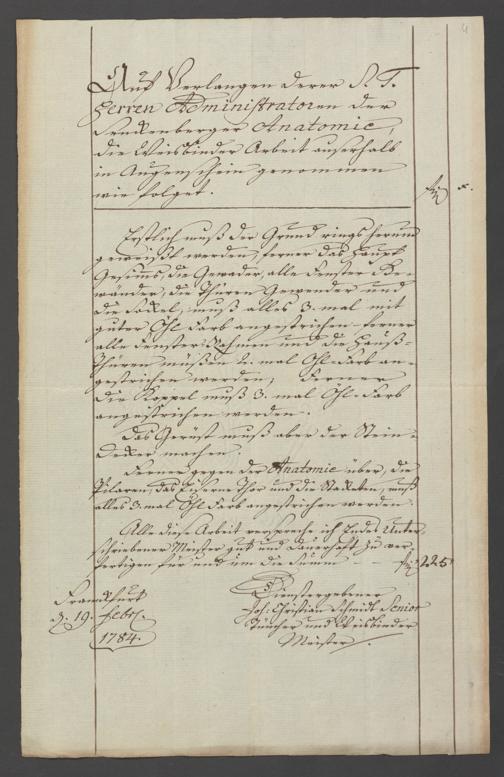 Auf Verlangen derer S. T.
Herren Administratoren der
Senckenberger Anatomie,
die Weisbinder Arbeit auserhalb
in Augenschein genommen
wie folget.
f x.
Erstlich muß der Grund rings herum
geweisst werden, ferner das Haupt
Gesims, die alle Fenster Ge-
wänder, die Thüren Gewender und
die Sockel, muß alles 3. mal mit
guter Öhl Farb angestrichen ferner
alle Fenster Rahmen und die Hauß-
Thüren müßen 2. mal Öhl-Farb an-
gestrichen werden, Ferner
die Koppel muß 3. mal Öhl-Farb
angestrichen werden.
Das Gerüst muß aber der Stein-
decker machen.
Ferner gegen der Anatomie über, die
Pilaren, das Eiserne Thor und die Stacketen, muß
alles 3. mal Öhl Farb angestrichen werden.
Alle diese Arbeit verspreche ich Endes Unter-
schriebener Meister gut und dauerhaft zu ver-
fertigen für und um die Summ - - f 225
Franckfurt
d. 19. Febr.
1784.
Dienstergebener
Joh: Christian Schmidt Senior
Tüncher und Weisbinder
Meister.